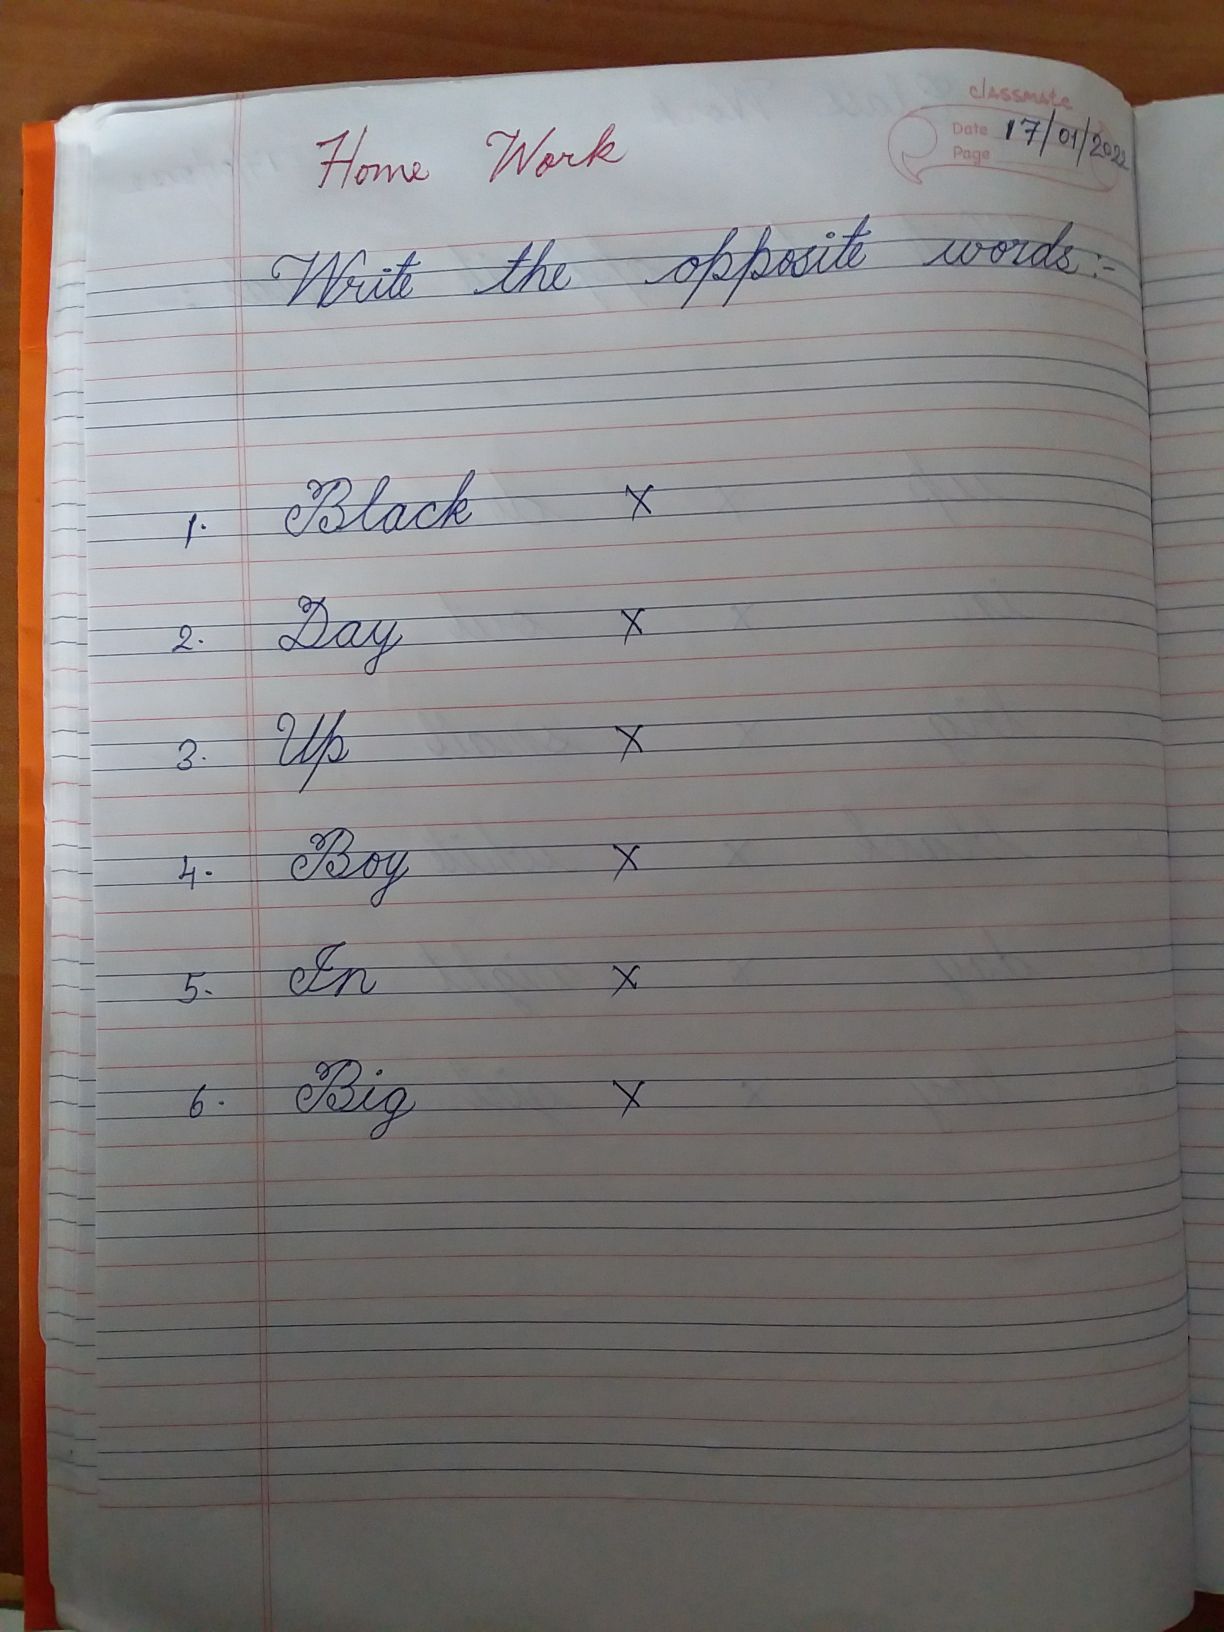 classmate
Date 17/01/2022
Page
Home Work
Write the opposite words:-
1. Black X
2. Day X
3. Up X
4. Boy X
5. In X
6. Big X